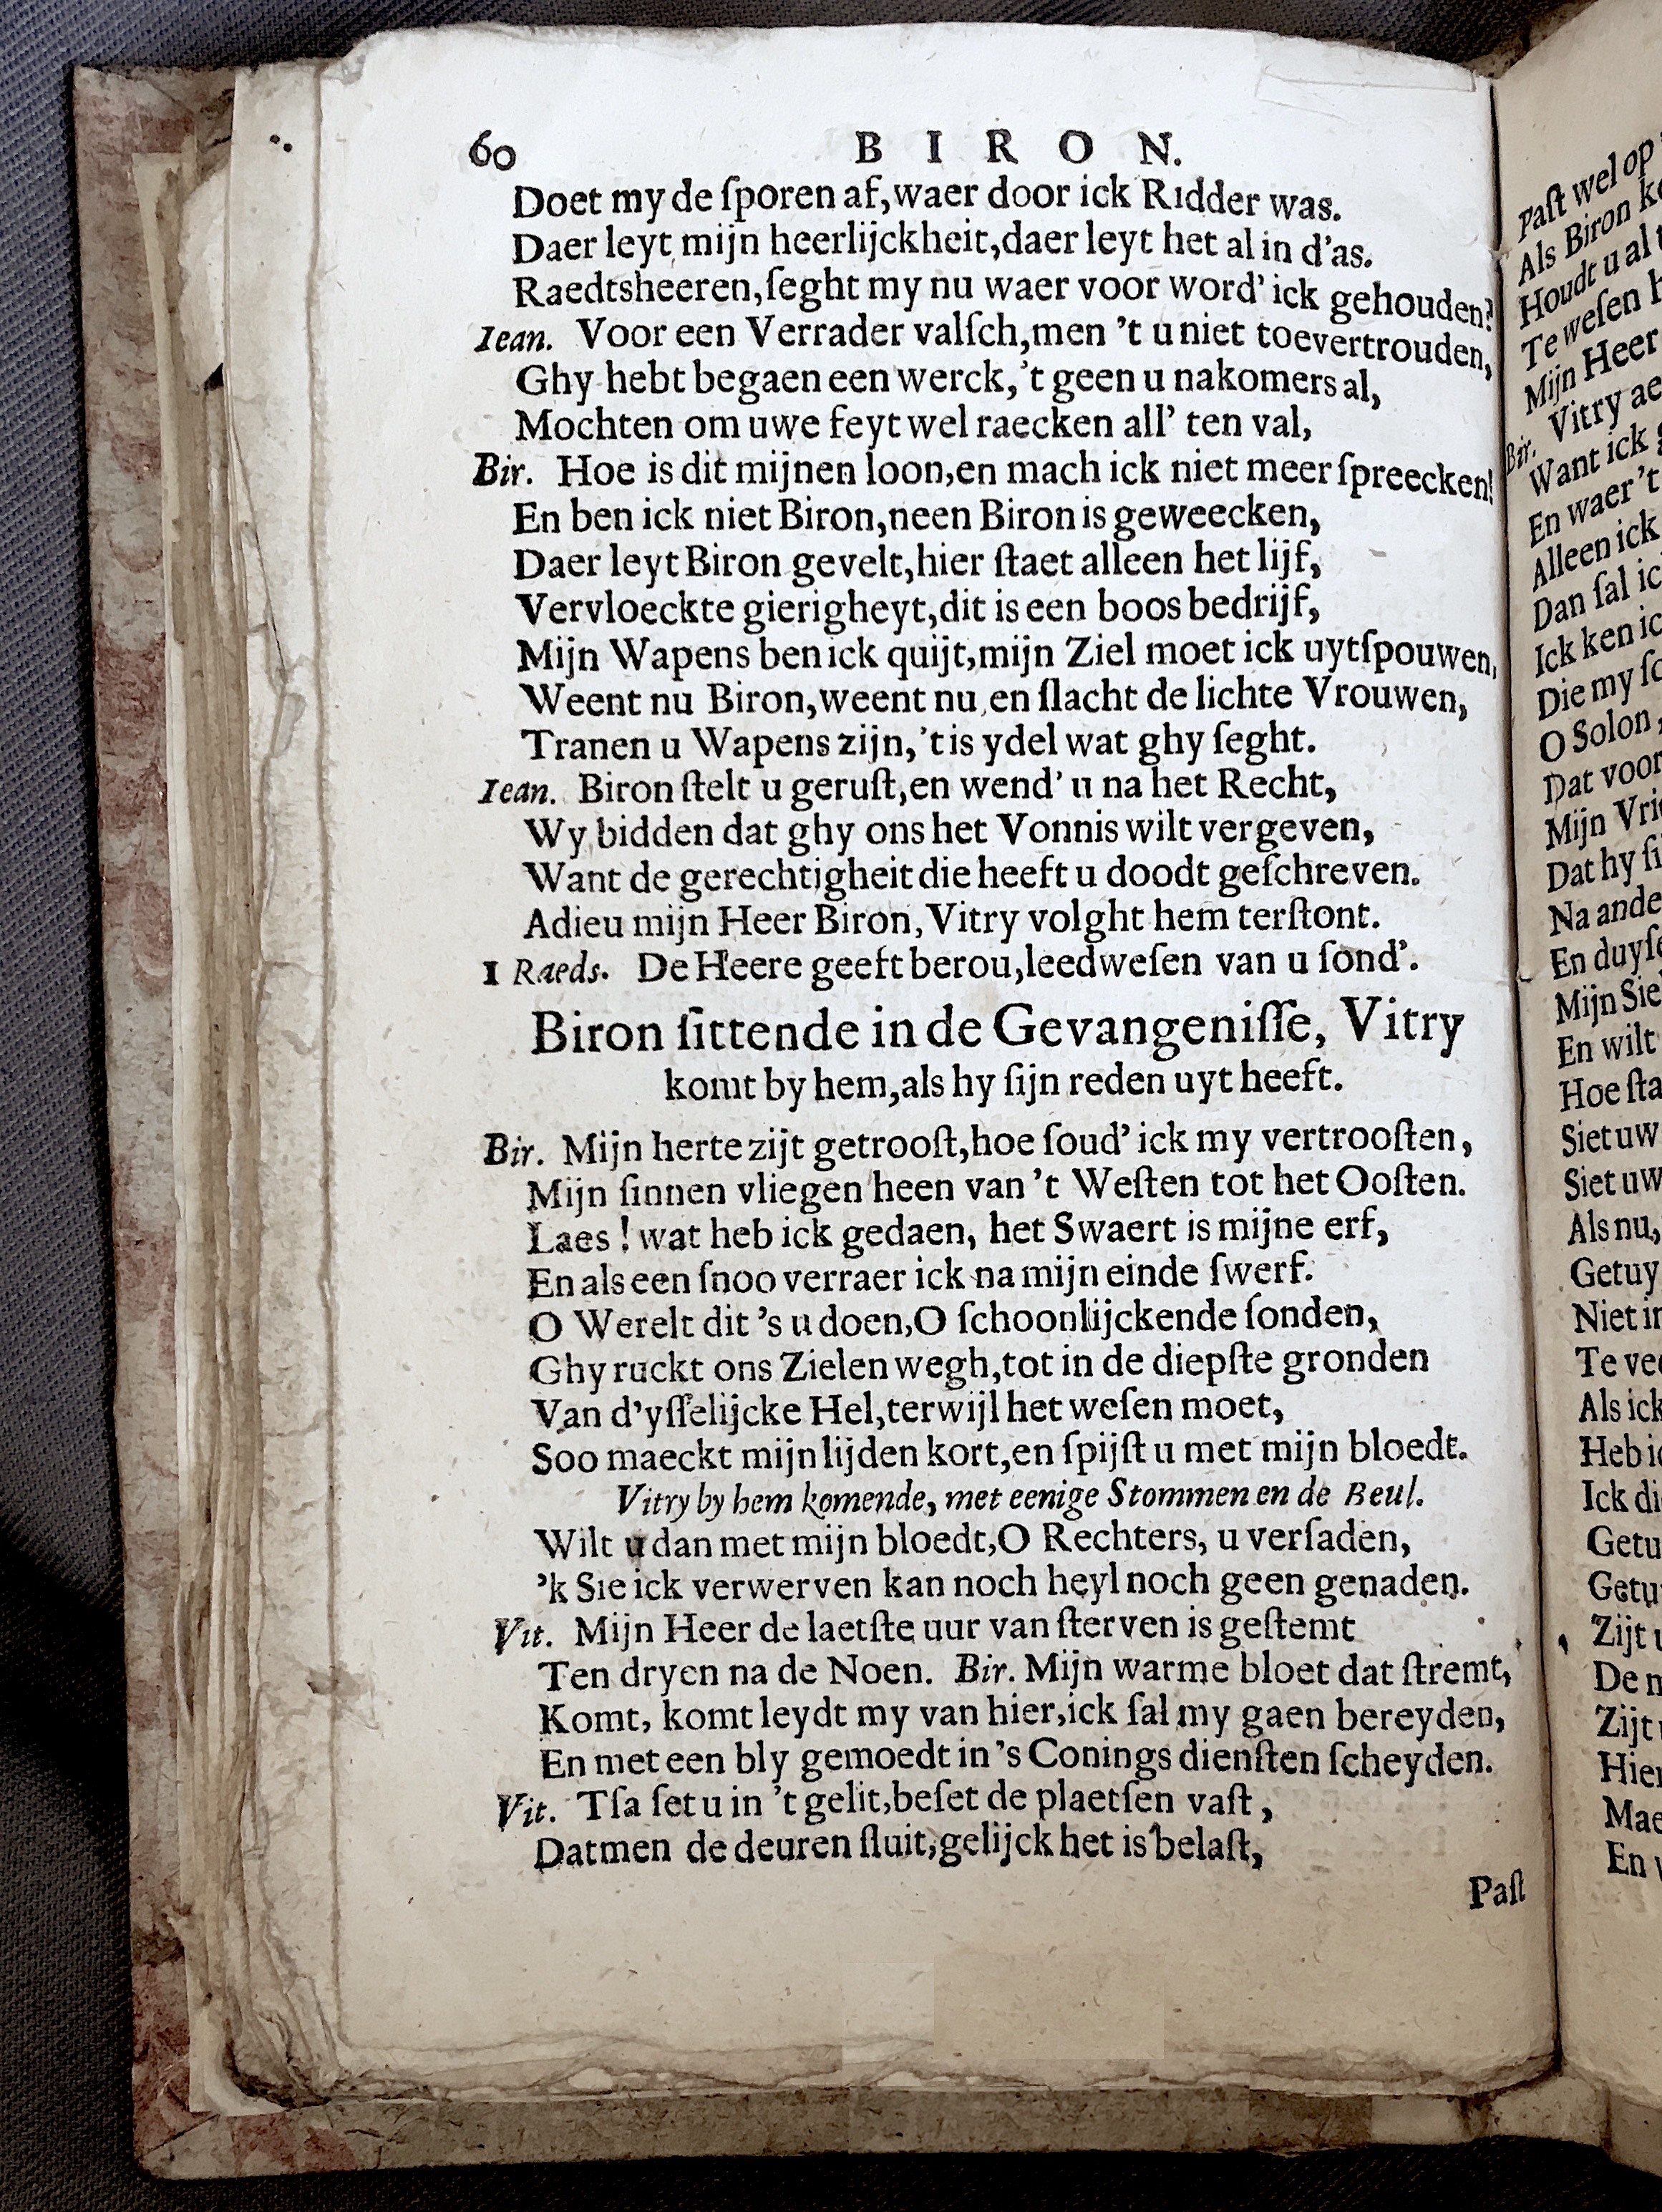 60 BIRON.
Doet my de ſporen af, waer door ick Ridder was.
Daer leyt mijn heerlijckheit, daer leyt het al in d'as.
Raedtsheeren, ſeght my nu waer voor word' ick gehouden?
Iean. Voor een Verrader valſch, men 't u niet toevertrouden,
Ghy hebt begaen een werck, 't geen u nakomers al,
Mochten om uwe feyt wel raecken all' ten val,
Bir. Hoe is dit mijnen loon, en mach ick niet meer ſpreecken!
En ben ick niet Biron, neen Biron is geweecken,
Daer leyt Biron gevelt, hier ſtaet alleen het lijf,
Vervloeckte gierigheyt, dit is een boos bedrijf,
Mijn Wapens ben ick quijt, mijn Ziel moet ick uytſpouwen,
Weent nu Biron, weent nu en ſlacht de lichte Vrouwen,
Tranen u Wapens zijn, 't is ydel wat ghy ſeght.
Iean. Biron ſtelt u geruſt, en wend' u na het Recht,
Wy bidden dat ghy ons het Vonnis wilt vergeven,
Want de gerechtigheit die heeft u doodt geſchreven.
Adieu mijn Heer Biron, Vitry volght hem terſtont.
1 Raeds. De Heere geeft berou, leedweſen van u ſond'.
Biron ſittende in de Gevangeniſſe, Vitry
komt by hem, als hy ſijn reden uyt heeft.
Bir. Mijn herte zijt getrooſt, hoe ſoud' ick my vertrooſten,
Mijn ſinnen vliegen heen van 't Weſten tot het Ooſten.
Laes! wat heb ick gedaen, het Swaert is mijne erf,
En als een ſnoo verraer ick na mijn einde ſwerf.
O Werelt dit 's u doen, O ſchoonlijckende ſonden,
Ghy ruckt ons Zielen wegh, tot in de diepſte gronden
Van d'yſſelijcke Hel, terwijl het weſen moet,
Soo maeckt mijn lijden kort, en ſpijſt u met mijn bloedt.
Vitry by hem komende, met eenige Stommen en de Beul.
Wilt u dan met mijn bloedt, O Rechters, u verſaden,
'k Sie ick verwerven kan noch heyl noch geen genaden.
Vit. Mijn Heer de laetſte uur van ſterven is geſtemt
Ten dryen na de Noen. Bir. Mijn warme bloet dat ſtremt,
Komt, komt leydt my van hier, ick ſal my gaen bereyden,
En met een bly gemoedt in 's Conings dienſten ſcheyden.
Vit. Tſa ſet u in 't gelit, beſet de plaetſen vaſt,
Datmen de deuren ſluit, gelijck het is belaſt,
Paſt
Paſt wel op
Als Biron
Houdt u al
Te weſen
Mijn Heer
Vitry
Bir. Want ick
En waer 't
Alleen ick
Dan ſal
Ick ken
Die my
O Solon,
Dat voor
Mijn
Dat hy
Na
En
Mijn
En wilt
Hoe
Siet uw
Siet uw
Als nu,
Getuy
Niet
Te
Als ick
Heb
Ick
Getu
Getu
Zijt
De
Zijt
Hier
Mae
En